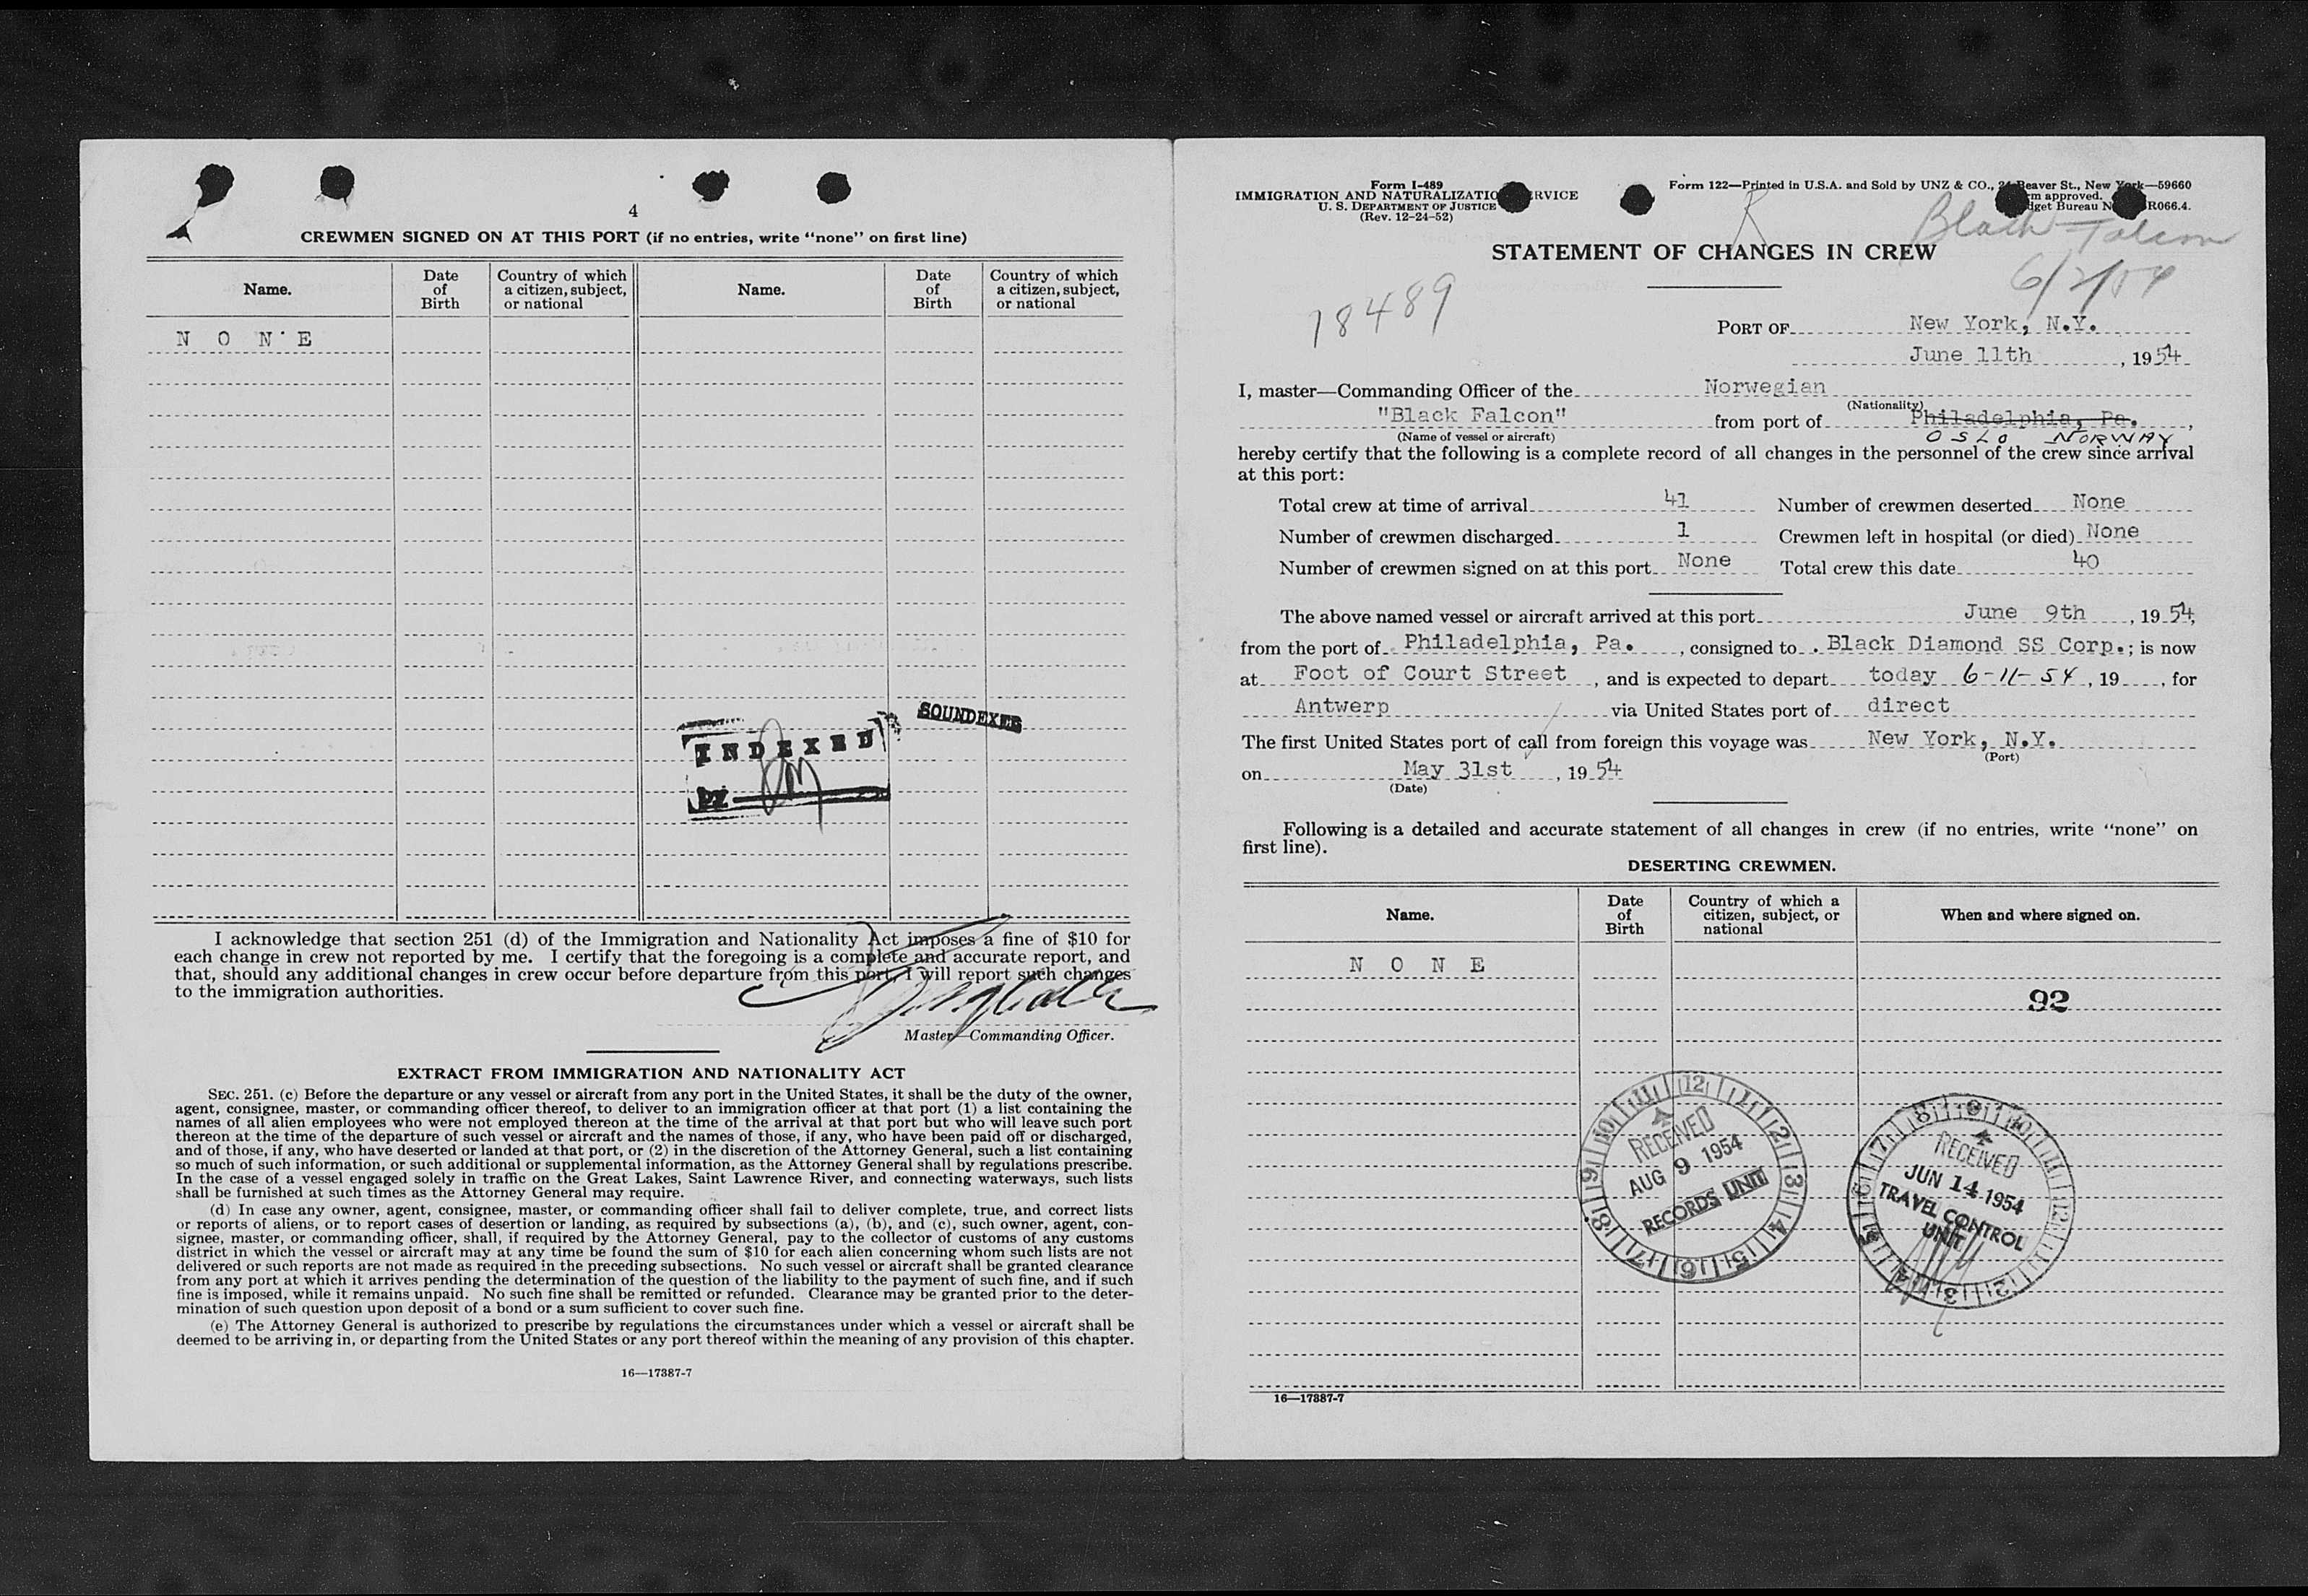 4
CREWMEN SIGNED ON AT THIS PORT (if no entries, write “none” on first line)
Name. Date of Birth Country of which a citizen, subject, or national Name. Date of Birth Country of which a citizen, subject, or national
N O N E
SOUNDEXED
INDEXED
BY
I acknowledge that section 251 (d) of the Immigration and Nationality Act imposes a fine of $10 for
each change in crew not reported by me. I certify that the foregoing is a complete and accurate report, and
that, should any additional changes in crew occur before departure from this port, I will report such changes
to the immigration authorities.
Master—Commanding Officer.
EXTRACT FROM IMMIGRATION AND NATIONALITY ACT
SEC. 251. (c) Before the departure or any vessel or aircraft from any port in the United States, it shall be the duty of the owner,
agent, consignee, master, or commanding officer thereof, to deliver to an immigration officer at that port (1) a list containing the
names of all alien employees who were not employed thereon at the time of the arrival at that port but who will leave such port
thereon at the time of the departure of such vessel or aircraft and the names of those, if any, who have been paid off or discharged,
and of those, if any, who have deserted or landed at that port, or (2) in the discretion of the Attorney General, such a list containing
so much of such information, or such additional or supplemental information, as the Attorney General shall by regulations prescribe.
In the case of a vessel engaged solely in traffic on the Great Lakes, Saint Lawrence River, and connecting waterways, such lists
shall be furnished at such times as the Attorney General may require.
(d) In case any owner, agent, consignee, master, or commanding officer shall fail to deliver complete, true, and correct lists
or reports of aliens, or to report cases of desertion or landing, as required by subsections (a), (b), and (c), such owner, agent, con-
signee, master, or commanding officer, shall, if required by the Attorney General, pay to the collector of customs of any customs
district in which the vessel or aircraft may at any time be found the sum of $10 for each alien concerning whom such lists are not
delivered or such reports are not made as required in the preceding subsections. No such vessel or aircraft shall be granted clearance
from any port at which it arrives pending the determination of the question of the liability to the payment of such fine, and if such
fine is imposed, while it remains unpaid. No such fine shall be remitted or refunded. Clearance may be granted prior to the deter-
mination of such question upon deposit of a bond or a sum sufficient to cover such fine.
(e) The Attorney General is authorized to prescribe by regulations the circumstances under which a vessel or aircraft shall be
deemed to be arriving in, or departing from the United States or any port thereof within the meaning of any provision of this chapter.
16—17387-7
Form I-489
IMMIGRATION AND NATURALIZATION SERVICE
U. S. DEPARTMENT OF JUSTICE
(Rev. 12-24-52)
Form 122—Printed in U.S.A. and Sold by UNZ & CO., 24 Beaver St., New York—59660
approved.
Budget Bureau R066.4.
Black Falcon
6/2/54
STATEMENT OF CHANGES IN CREW
18489
PORT OF New York, N.Y.
June 11th , 19 54
I, master—Commanding Officer of the Norwegian
(Nationality)
"Black Falcon" from port of Philadelphia, Pa. ,
(Name of vessel or aircraft) OSLO NORWAY
hereby certify that the following is a complete record of all changes in the personnel of the crew since arrival
at this port:
Total crew at time of arrival 41 Number of crewmen deserted None
Number of crewmen discharged 1 Crewmen left in hospital (or died) None
Number of crewmen signed on at this port None Total crew this date 40
The above named vessel or aircraft arrived at this port June 9th , 19 54,
from the port of Philadelphia, Pa. , consigned to Black Diamond SS Corp.; is now
at Foot of Court Street , and is expected to depart today 6-11-54 , 19 , for
Antwerp via United States port of direct
The first United States port of call from foreign this voyage was New York, N.Y.
(Port)
on May 31st , 19 54
(Date)
Following is a detailed and accurate statement of all changes in crew (if no entries, write “none” on
first line).
DESERTING CREWMEN.
Name. Date of Birth Country of which a citizen, subject, or national When and where signed on.
N O N E
92
12 1 2 3 4 5 6 7 8 9 10 11
RECEIVED
AUG 9 1954
RECORDS UNIT
8 9 10 11 12 1 2 3 4 5 6 7
RECEIVED
JUN 14 1954
TRAVEL CONTROL
UNIT
16—17387-7